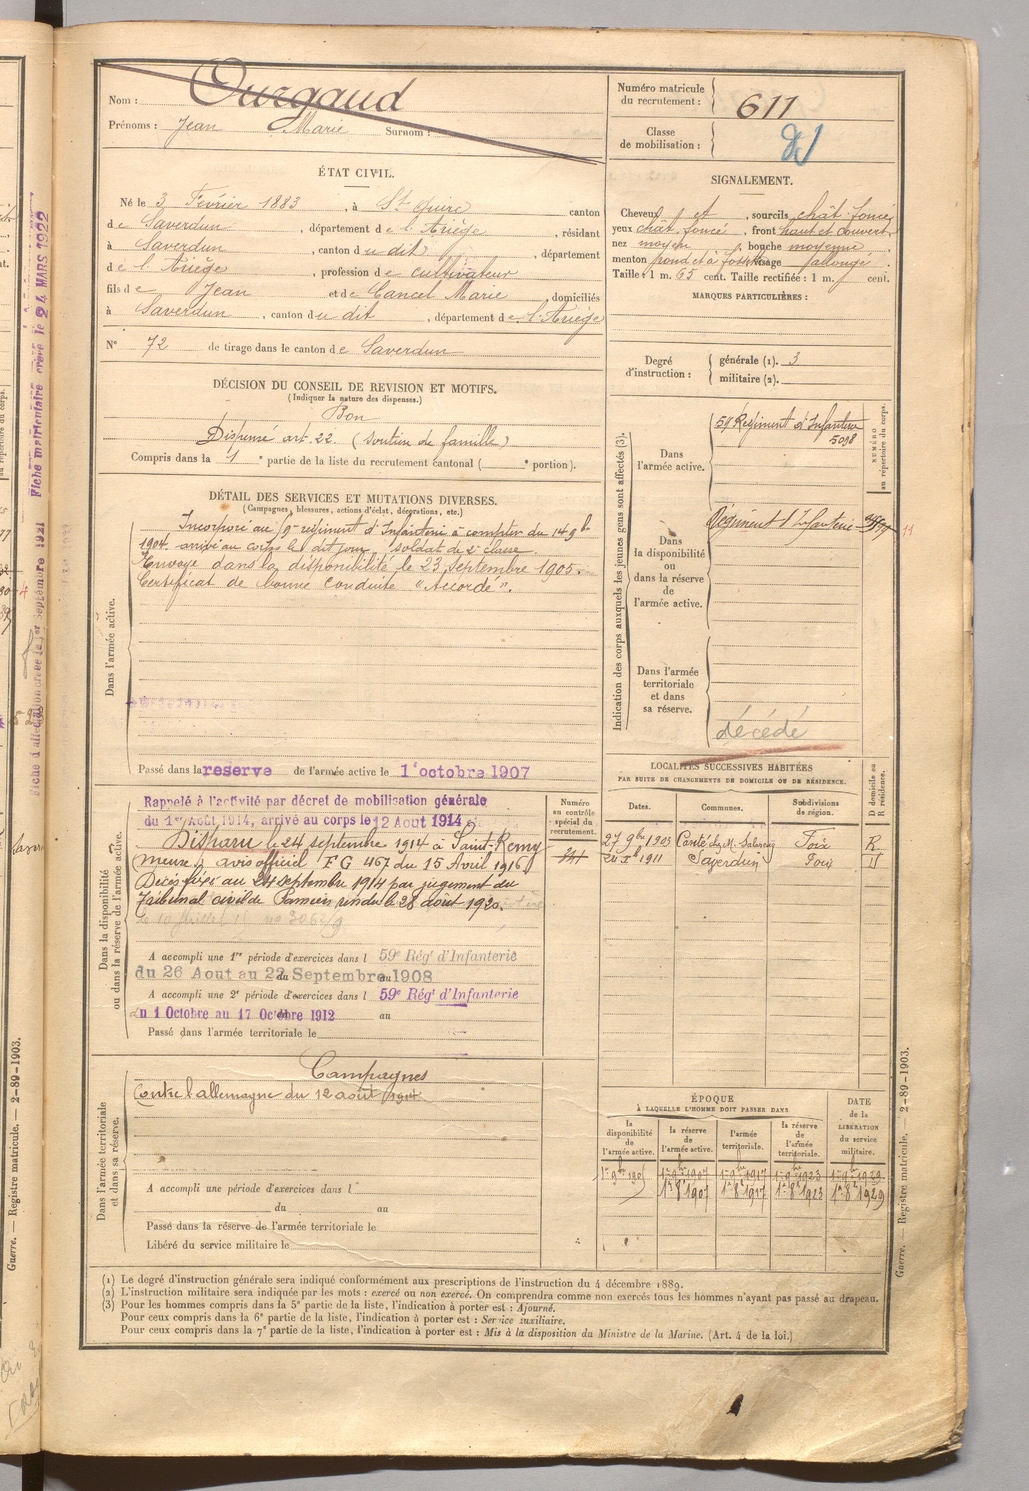 Nom : Ourgaud
Prénoms : Jean Marie Surnom :
Numéro matricule du recrutement : 611
Classe de mobilisation :
ÉTAT CIVIL.
Né le 3 Février 1883, à St Quirc canton
de Saverdun, département de l'Ariège, résidant
à Saverdun, canton du dit, département
de l'Ariège, profession de cultivateur
fils de Jean et de Cancel Marie, domiciliés
à Saverdun, canton du dit, département de l'Ariège
N° 72 de tirage dans le canton de Saverdun
SIGNALEMENT.
Cheveux et sourcils chât foncé
yeux chât. foncé, front haut et découvert
nez moyen, bouche moyenne
menton rond et à fossette visage allongé
Taille : 1 m. 65 cent. Taille rectifiée : 1 m. cent.
MARQUES PARTICULIÈRES :
Degré d'instruction : générale (1). 3
militaire (2).
DÉCISION DU CONSEIL DE REVISION ET MOTIFS.
(Indiquer la nature des dispenses.)
Bon
Dispensé art. 22. (soutien de famille)
Compris dans la 1e partie de la liste du recrutement cantonal ( e portion).
DÉTAIL DES SERVICES ET MUTATIONS DIVERSES.
(Campagnes, blessures, actions d'éclat, décorations, etc.)
Dans l'armée active.
Incorporé au 9e régiment d'Infanterie à compter du 14 9b
1904. arrivé au corps le dit jour, soldat de 2e classe.
Envoyé dans la disponibilité le 23 Septembre 1905.
Certificat de bonne conduite "Accordé".
Passé dans la reserve de l'armée active le 1er octobre 1907
Indication des corps auxquels les jeunes gens sont affectés (3).
NUMÉRO au répertoire du corps.
Dans l'armée active.
Régiment d'Infanterie
5098
Dans la disponibilité ou dans la réserve de l'armée active.
Régiment d'Infanterie
11
Dans l'armée territoriale et dans sa réserve.
décédé
Dans la disponibilité ou dans la réserve de l'armée active.
Rappelé à l'activité par décret de mobilisation générale
du 1er Août 1914, arrivé au corps le 12 Aout 1914
Disparu le 24 septembre 1914 à Saint-Remy
(Meuse) avis officiel F G 467 du 15 Avril 1916
Décès fixé au 24 septembre 1914 par jugement du
Tribunal civil de Pamiers rendu le 28 août 1920.
A accompli une 1re période d'exercices dans l 59e Régt d'Infanterie
du 26 Aout au 22 Septembre 1908
A accompli une 2e période d'exercices dans l 59e Régt d'Infanterie
du 1 Octobre au 17 Octobre 1912 au
Passé dans l'armée territoriale le
Numéro au contrôle spécial du recrutement.
LOCALITÉS SUCCESSIVES HABITÉES
PAR SUITE DE CHANGEMENTS DE DOMICILE OU DE RÉSIDENCE.
Dates. Communes. Subdivisions de région. D domicile ou R résidence.
27 9bre 1903 Foix R
24 Xb 1911 Saverdun Foix D
Dans l'armée territoriale et dans sa réserve.
Campagnes
Contre l'allemagne du 12 août 1914
A accompli une période d'exercices dans l
du au
Passé dans la réserve de l'armée territoriale le
Libéré du service militaire le
ÉPOQUE
À LAQUELLE L'HOMME DOIT PASSER DANS
la disponibilité de l'armée active. la réserve de l'armée active. l'armée territoriale. la réserve de l'armée territoriale. DATE de la LIBÉRATION du service militaire.
1er 9bre 1907 1er 9bre 1917 1er 9bre 1923 1er 9bre 1929
1er 8b 1907 1er 8b 1917 1er 8b 1923 1er 8b 1929
(1) Le degré d'instruction générale sera indiqué conformément aux prescriptions de l'instruction du 4 décembre 1889.
(2) L'instruction militaire sera indiquée par les mots : exercé ou non exercé. On comprendra comme non exercés tous les hommes n'ayant pas passé au drapeau.
(3) Pour les hommes compris dans la 5e partie de la liste, l'indication à porter est : Ajourné.
Pour ceux compris dans la 6e partie de la liste, l'indication à porter est : Service auxiliaire.
Pour ceux compris dans la 7e partie de la liste, l'indication à porter est : Mis à la disposition du Ministre de la Marine. (Art. 4 de la loi.)
Guerre. — Registre matricule. — 2-89-1903.
Guerre. — Registre matricule. — 2-89-1903.
Fiche matriculaire créée le 24 MARS 1922